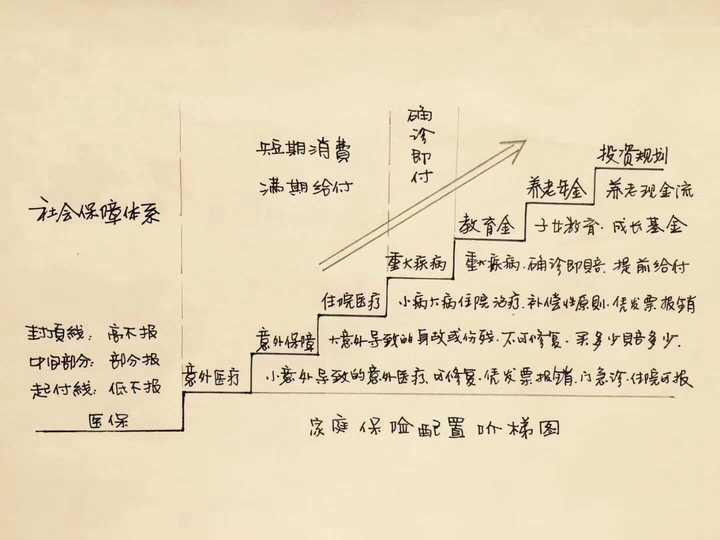 确诊即付
短期消费
满期给付
投资规划
养老年金 养老现金流
社会保障体系
教育金 子女教育·成长基金
重大疾病 重大疾病·确诊即赔·提前给付
住院医疗 小病大病住院治疗·补偿性原则·凭发票报销
封顶线：高不报
意外保障 大意外导致的身故或伤残·不可修复·买多少赔多少.
中间部分：部分报
意外医疗 小意外导致的意外医疗·可修复·凭发票报销·门急诊·住院可报
起付线：低不报
医保
家庭保险配置阶梯图